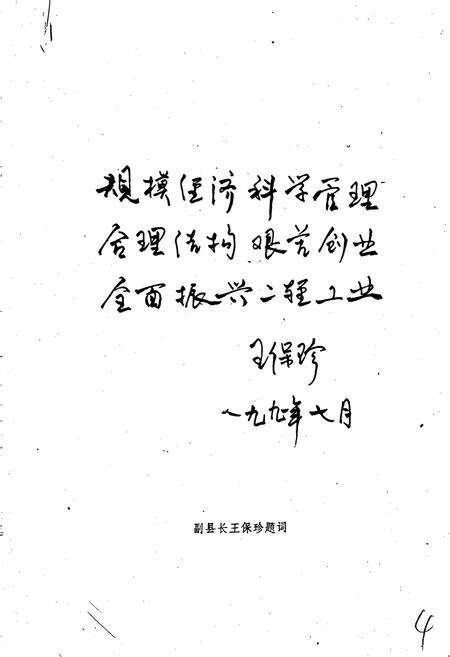 规模经济 科学管理
合理结构 艰苦创业
全面振兴二轻工业
王保珍
一九九年七月
副县长王保珍题词
4